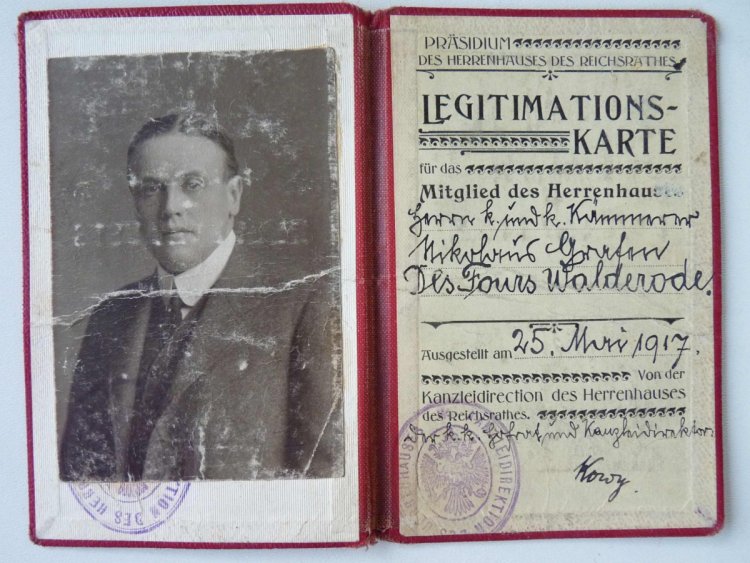 PRÄSIDIUM
DES HERRENHAUSES DES REICHSRATHES
LEGITIMATIONS-
KARTE
für das
Mitglied des Herrenhauses
Herrn k. und k. Kämmerer
Nikolaus Grafen
Des Fours Walderode.
Ausgestellt am 25. Mai 1917.
Von der
Kanzleidirection des Herrenhauses
des Reichsrathes.
Der k. k. Hofrat und Kanzleidirektor: